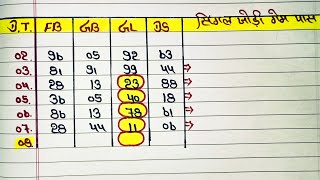 D.T. FB GB GL DS सिंगल जोड़ी गेम पास
02. 96 05 92 63
03. 81 91 99 44 ⇒
04. 28 13 23 88 ⇒
05. 36 05 40 18 ⇒
06. 86 13 78 61 ⇒
07. 28 44 11 06 ⇒
08.